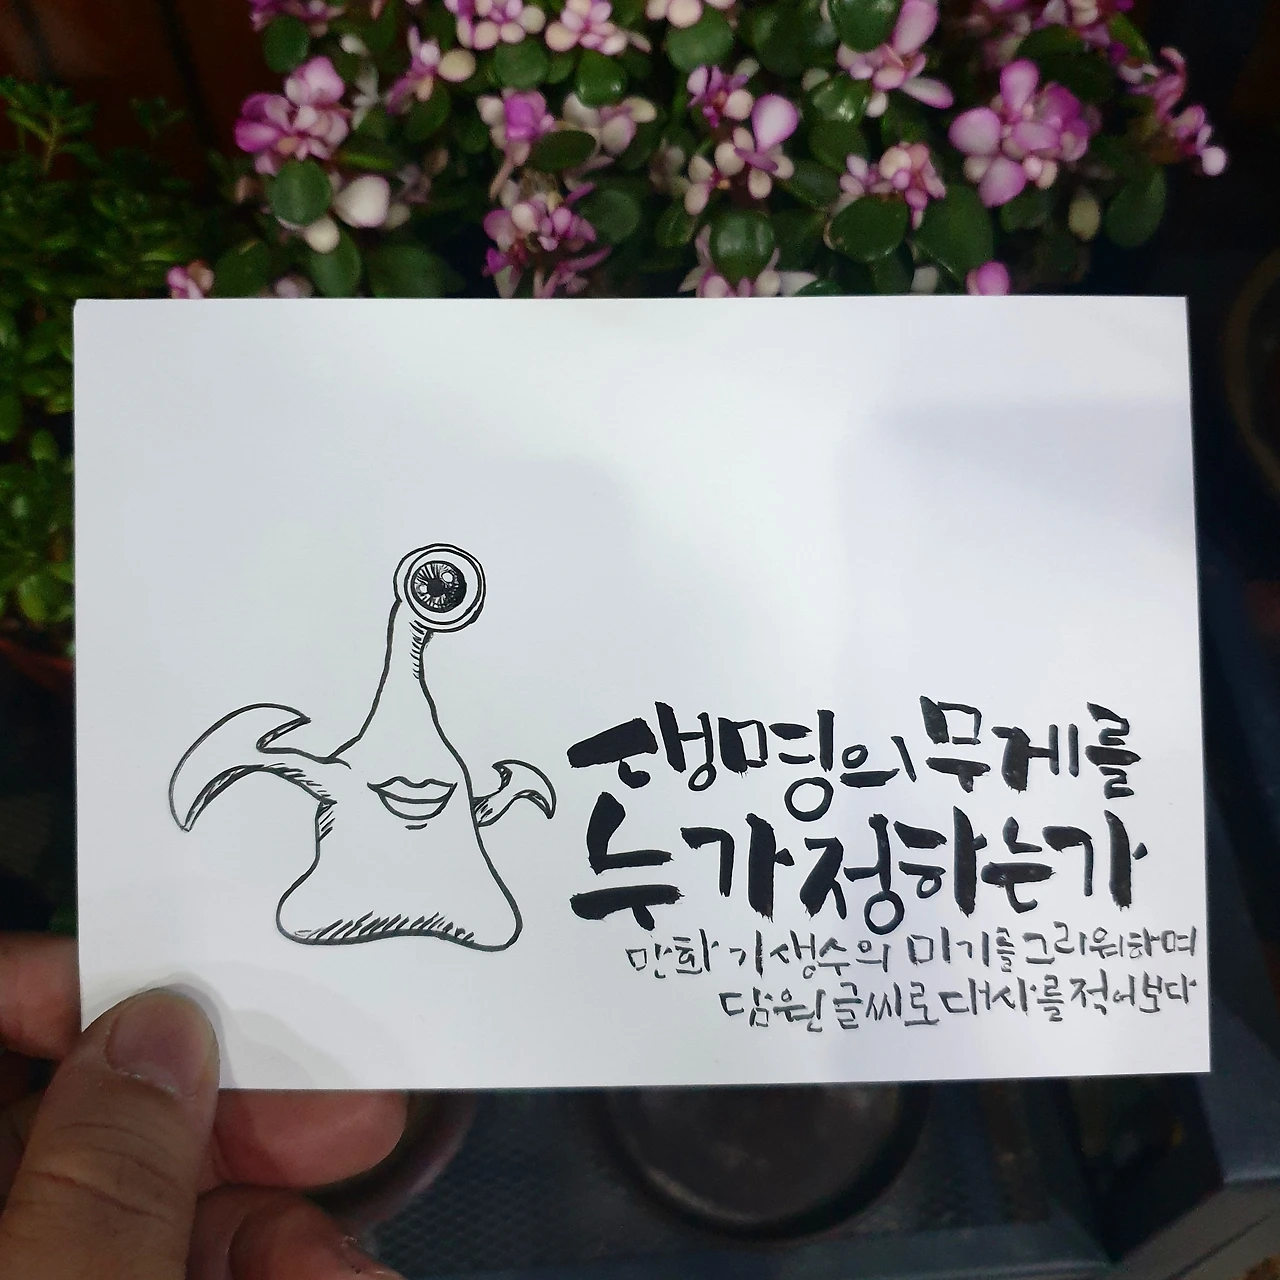 생명의 무게를
누가 정하는가
만화 기생수의 미기를 그리워하며
담원 글씨로 대사를 적어보다